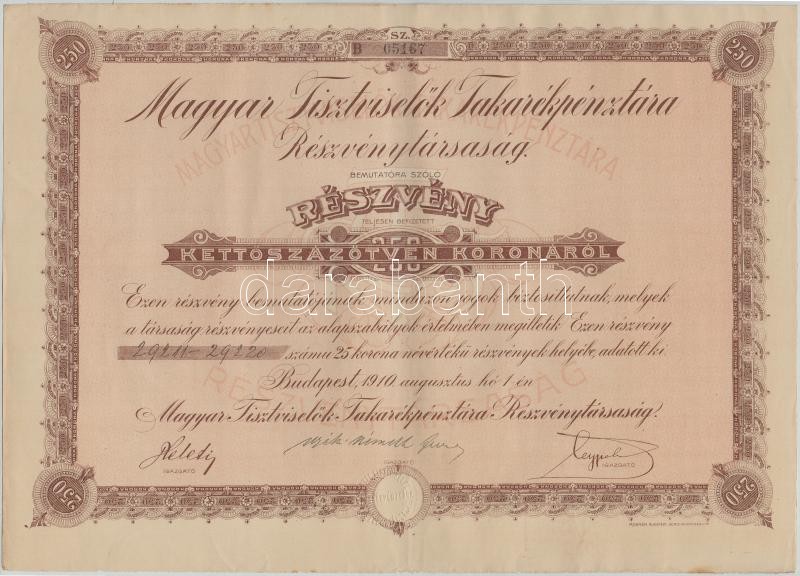 250
SZ.
B 05167
250
Magyar Tisztviselők Takarékpénztára
MAGYAR TISZTVISELŐK TAKARÉKPÉNZTÁRA
Részvénytársaság.
BEMUTATÓRA SZÓLÓ
RÉSZVÉNY
TELJESEN BEFIZETETT
250
KETTŐSZÁZÖTVEN KORONÁRÓL
darabanth
Ezen részvény bemutatójának mindazon jogok biztosíttatnak, melyek
a társaság részvényeseit az alapszabályok értelmében megilletik. Ezen részvény
29211-29220 számú 25 korona névértékű részvények helyébe adatott ki.
RÉSZVÉNYTÁRSASÁG
Budapest, 1910. augusztus hó 1-én
Magyar Tisztviselők Takarékpénztára Részvénytársaság.
IGAZGATÓ
IGAZGATÓ
IGAZGATÓ
250
250